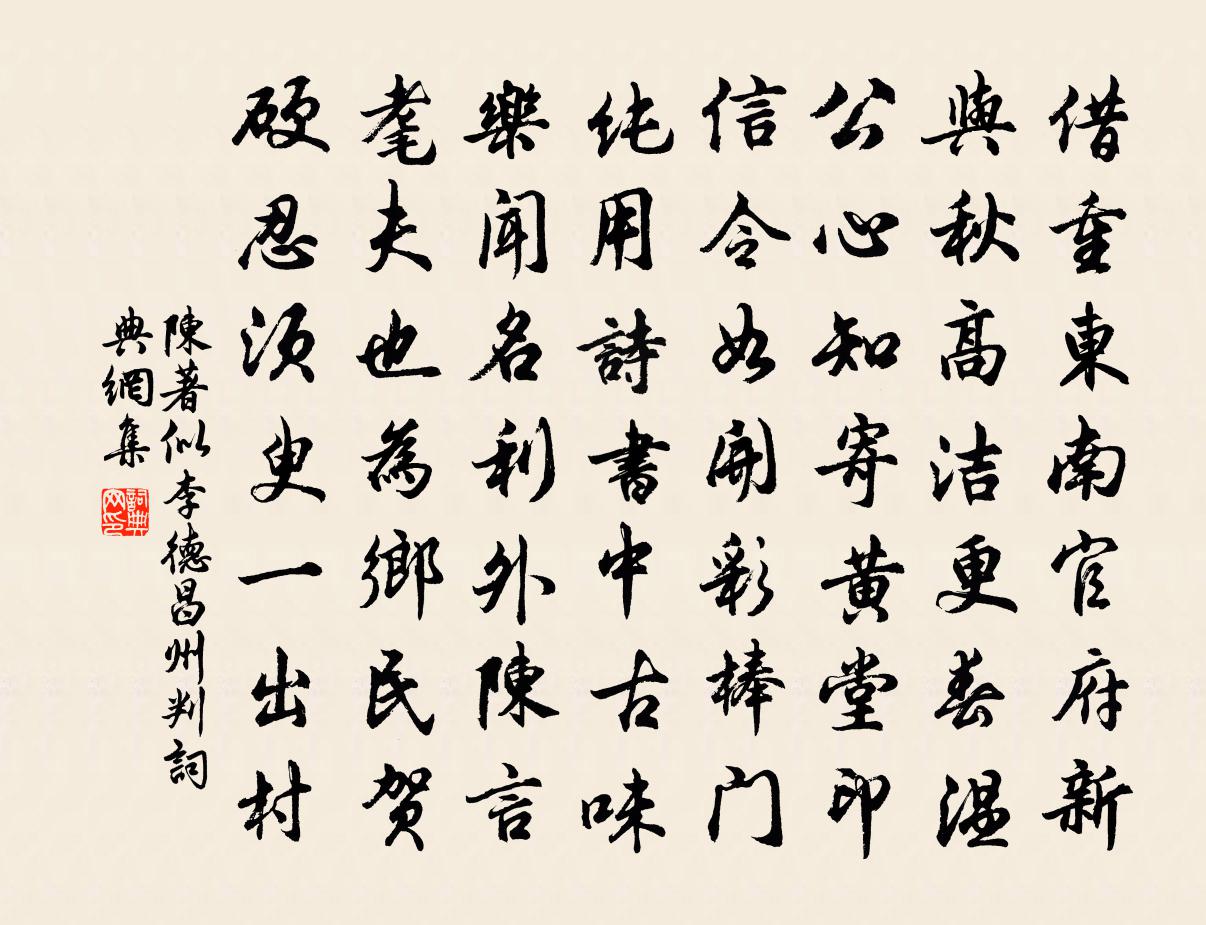 借重東南官府新
與秋高洁更春温
公心知寄黄堂印
信令如開彩棒門
純用詩書中古味
樂聞名利外陳言
耄夫也為鄉民賀
硬忍須臾一出村
陳著似李德昌州判詞
典網集
詞典
网印